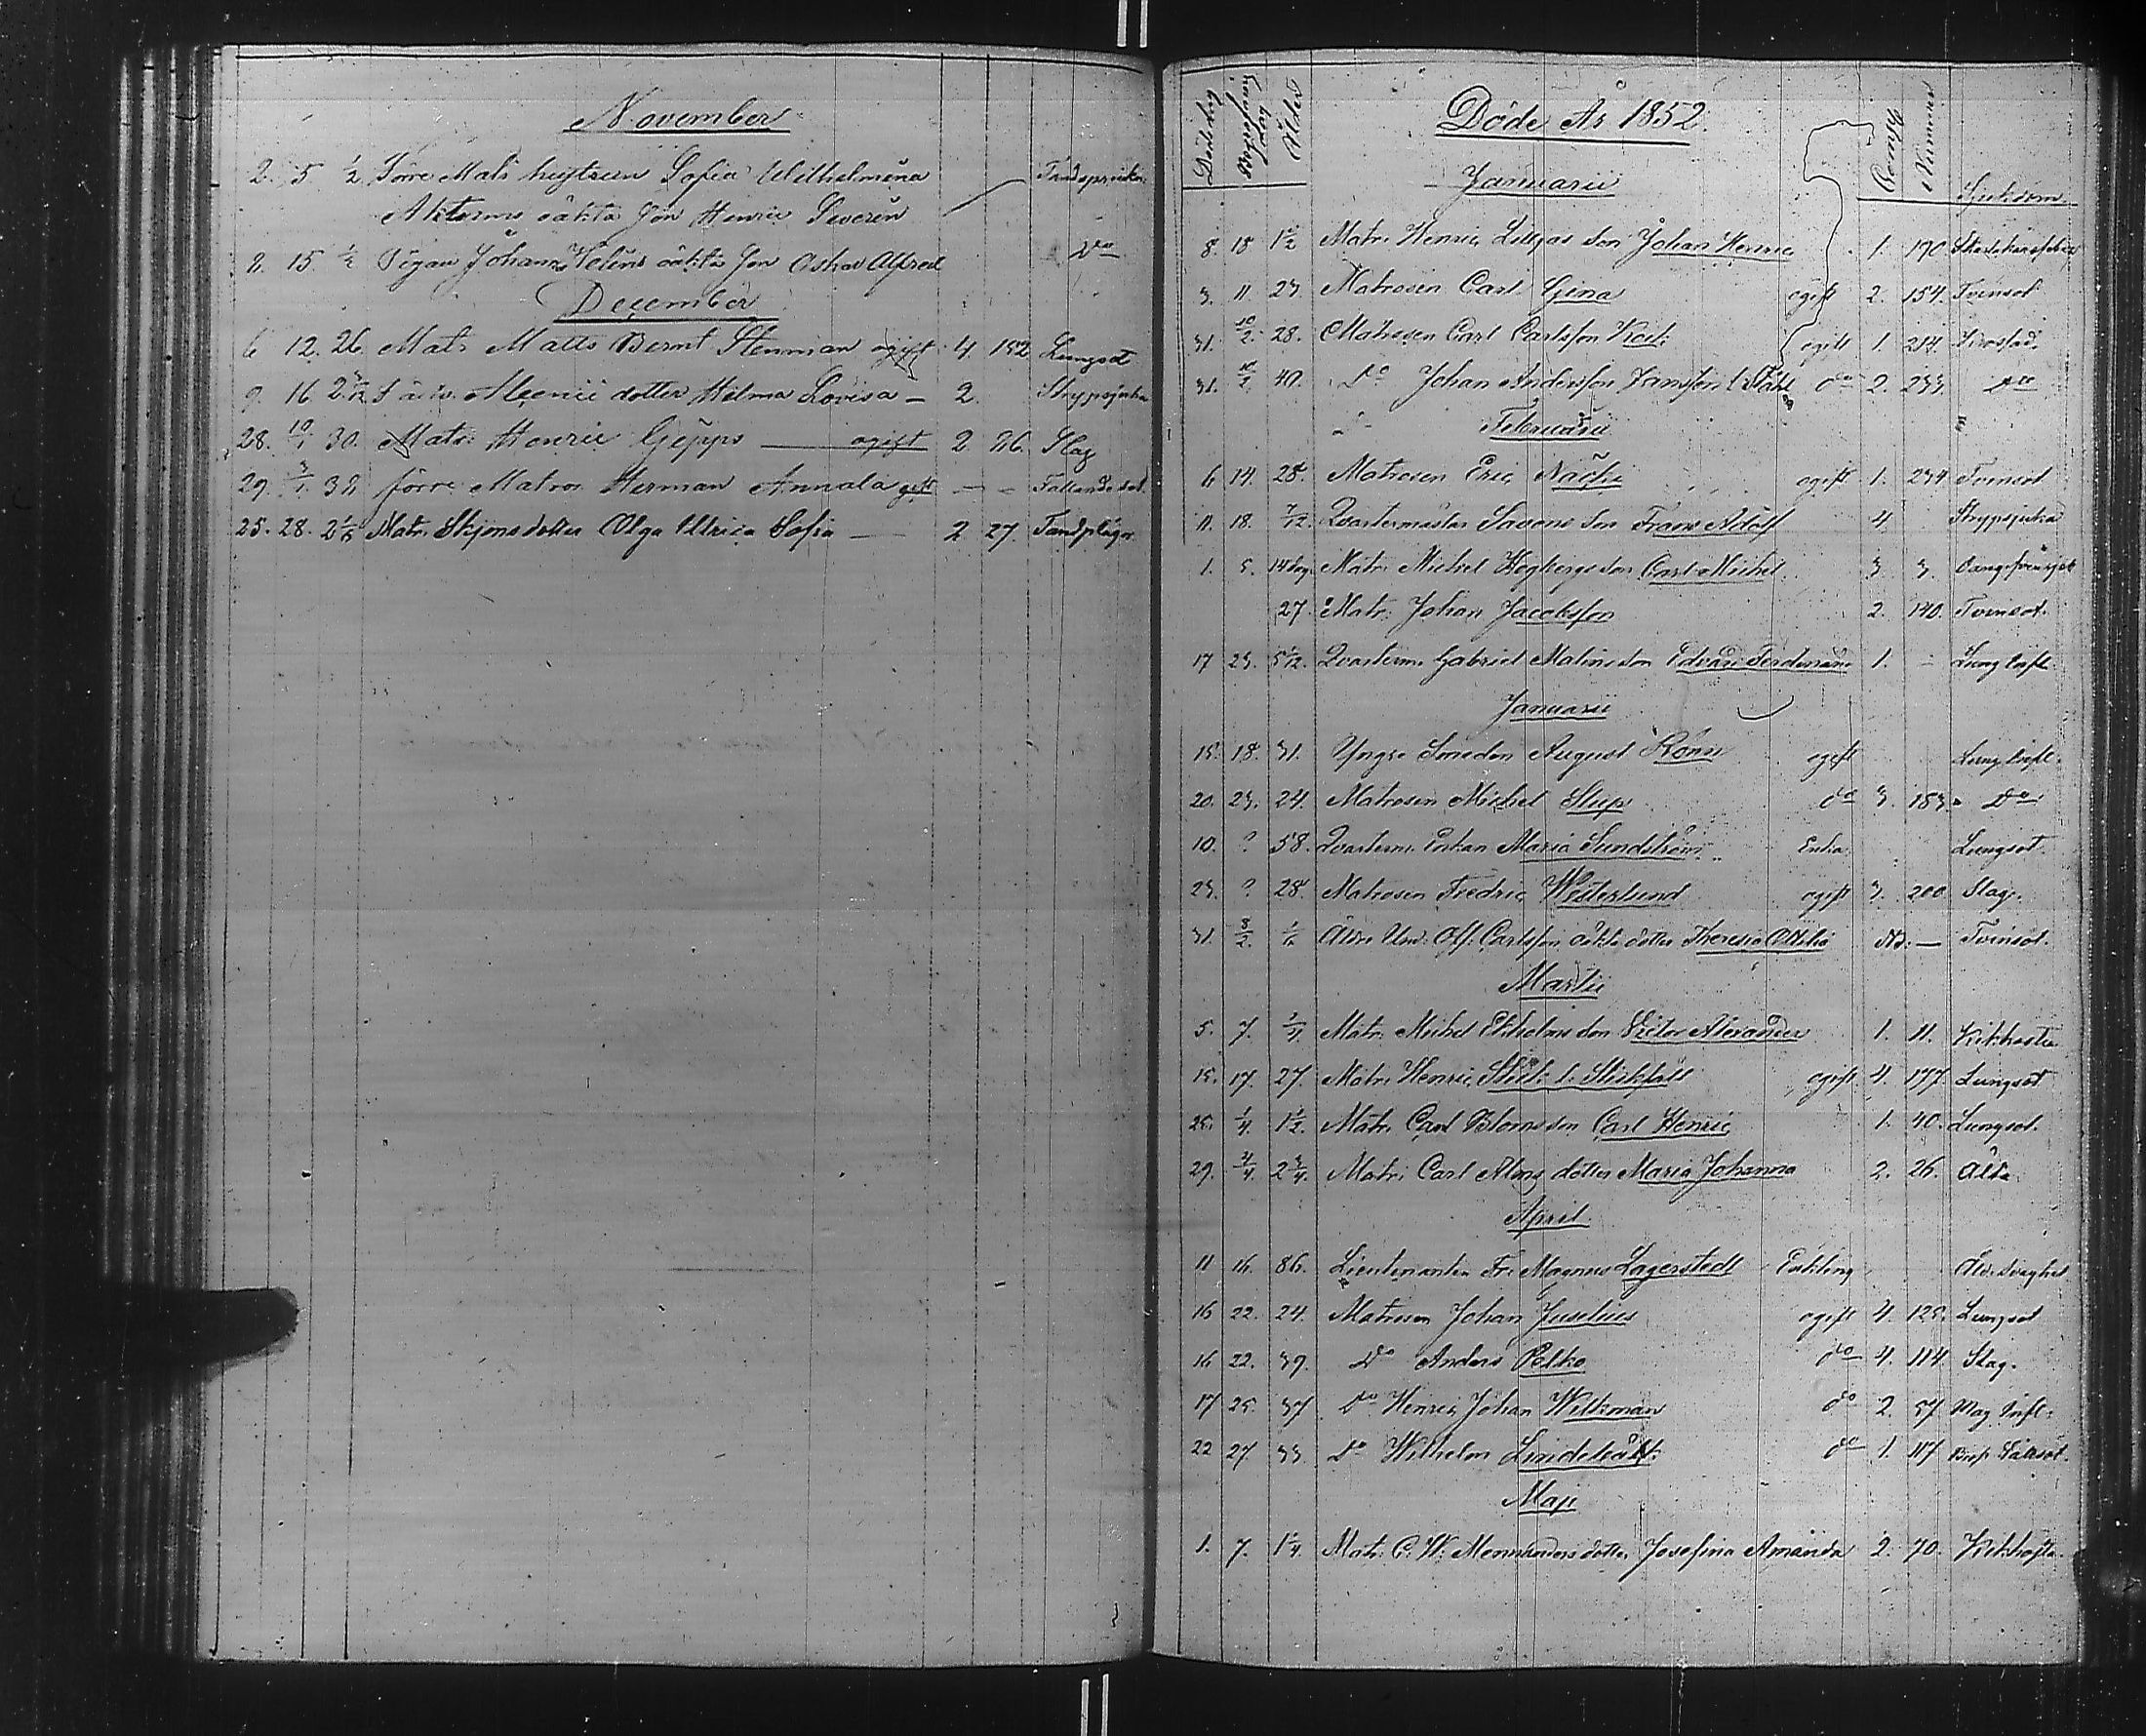 November
2. 5 ½ Förre Mats hustrun Sofia Wilhelmina Tandsprickn.
äkta Son Henric Severin
8. 15. ½ Pigan Johanna Helens äkta Son Oskar Alfred Do
December
6 12. 26. Matr Matts Bernt Stenman ogift 4. 152 Lungsot
9. 16 2 3/12 dotter Hilma Lovisa — 2. Strypsjuka
28. 10/1 30. Matr. Henric Gepps ogift 2. 26. Slag
29. 3/1. 38 förre Matros Herman Annala gift — — Fallandesot
25. 28. 2 Matr. Skjons dotter Olga Ulrica Sofia — 2. 27. Tandplågor
Dödsdag Begrafning dag Ålder Döde År 1852. Comp Nummer
Januarii Sjukdom
8. 18 1½ Matr. Henric Liljas Son Johan Henric 1. 170.
3. 11. 23. Matrosen Carl Gina ogift 2. 154. Tvinsot
31. 10/2. 28. Matrosen Carl Carlsson ogift 1. 214.
31. 10/2. 40. Do Johan Andersson Jansson l. Ståhl do 2. 233. Do
Februarii
6 14. 28. Matrosen Eric Näcki ogift 1. 234 Tvinsot
11. 18. 7/12. Qvartermästar Savons Son Frans Adolf 4. Strypsjuka
1. 5. 14 dag. Matr. Michel Högbergs Son Carl Michel. 3 3.
27. Matr. Johan Jacobsson 2. 140. Tvinsot.
17 23. 5/12. Qvarterm. Gabriel Malins Son Edvard Ferdinand 1. — Lung Infl.
Januarii
15. 18. 31. Yngre Smeden August Rönn ogift Lung Infl.
20. 23. 24. Matrosen Michel Slup do 3. 183. Do
10. ? 58. Qvarterm. Enkan Maria Sundström Enka Lungsot.
23. ? 28 Matrosen Fredric Westerlund ogift 3. 200 Slag.
31. 8/2. Äldre Und. Off. Carlsson äkta dotter Theresia Ottilia — Tvinsot.
Martii
5. 7. Matr. Michel Ekholms Son Victor Alexander 1. 11. Kikhosta
15. 17. 27. Matr. Henric ogift 4. 177 Lungsot
25. 1/4. 1½. Matr. Carl Bloms Son Carl Henric 1. 40. Lungsot.
29. 4/4. 2¾. Matr. Carl Alms dotter Maria Johanna 2. 26. Älta
April
11 16. 86. Lieutenanten Fr. Magnus Lagerstedt Enkling
16 22. 24. Matrosen Johan Juselius ogift 4. 125. Lungsot
16 22. 39. Do Anders Pelko do 4. 114. Slag.
17 25. 37 Do Henric Johan Wilkman do 2. 57. Mag Infl.
22 27. 33. Do Wilhelm do 1. 117
Maji
1. 7. 1¼. Matr. C. W. Mennanders dotter Josefina Amanda 2. 70. Kikhosta.